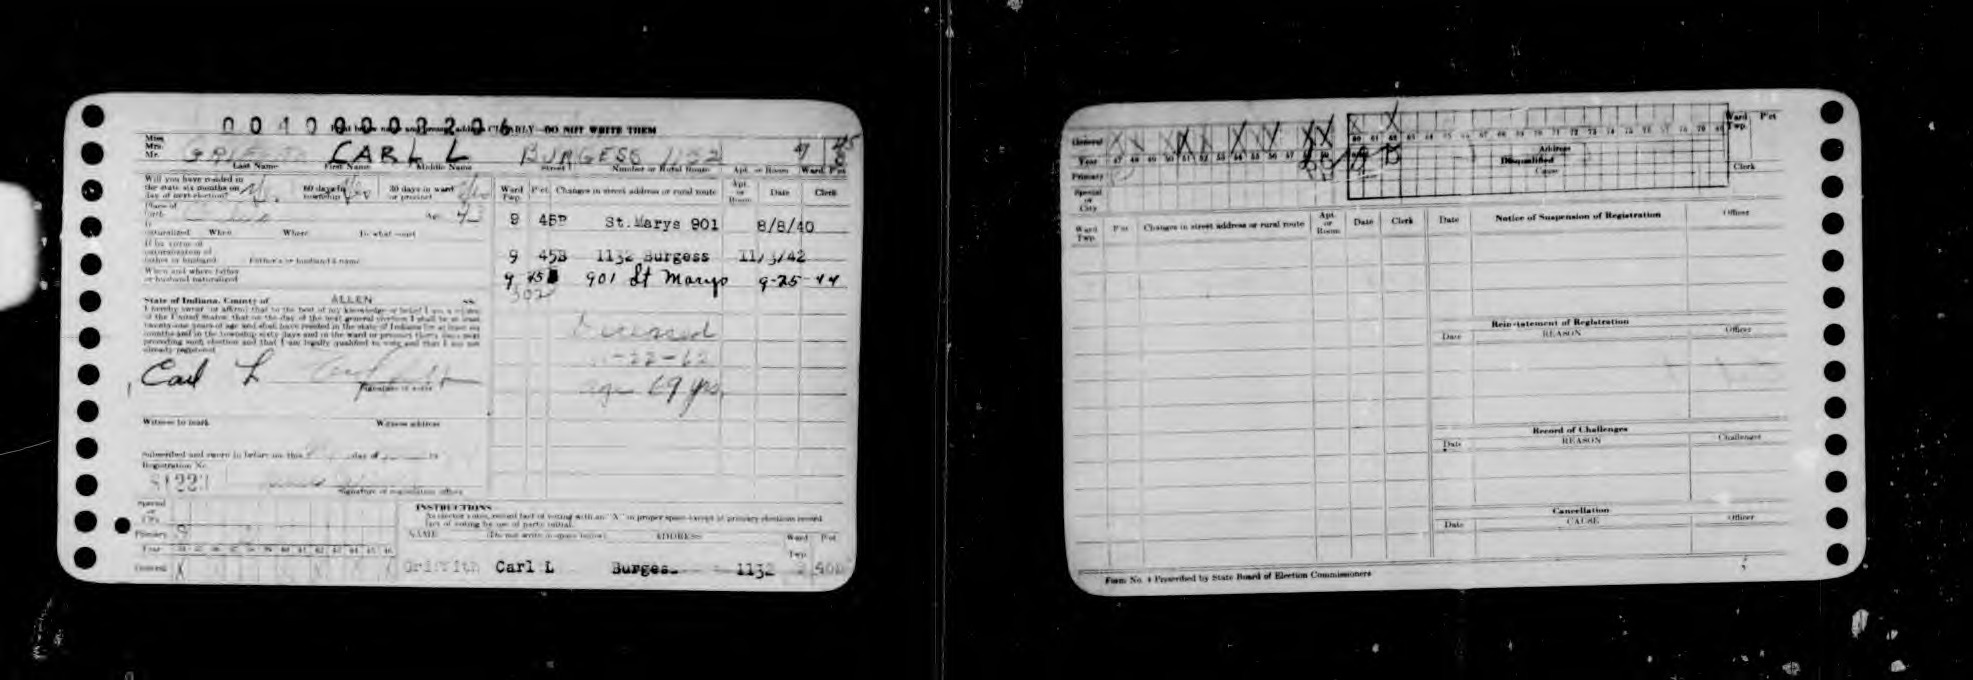 Print below name and present address CLEARLY—DO NOT WRITE THEM
Miss.
Mrs.
Mr. CARL L BURGESS 1132
Last Name First Name Middle Name Street Number or Rural Route Apt. or Room Ward P'ct
Will you have resided in
the state six months on
day of next election? 60 days in
township 30 days in ward
or precinct
Place of
birth Age 43
If
naturalized When Where In what court
If by virtue of
naturalization of
father or husband Father's or husband's name
When and where father
or husband naturalized
State of Indiana, County of ALLEN ss.
I hereby swear or affirm that to the best of my knowledge or belief I am a citizen
of the United States; that on the day of the next general election I shall be at least
twenty-one years of age and shall have resided in the state of Indiana for at least six
months and in the township sixty days and in the ward or precinct thirty days next
preceding such election and that I am legally qualified to vote and that I am not
already registered
Carl L
Signature of voter
Witness to mark Witness address
Subscribed and sworn to before me this day of 19
Registration No.
Signature of registration officer
Ward
Twp. P'ct Changes in street address or rural route Apt.
or
Room Date Clerk
9 45B St.Marys 901 8/8/40
9 45B 1132 Burgess 11/3/42
9 45 901 St Marys 9-25-44
302
Deceased
-22-62
age 69 yrs,
Special
or
City
Primary
Year
General X
INSTRUCTIONS
As elector votes, record fact of voting with an "X" in proper space except at primary elections record
fact of voting by use of party initial.
NAME (Do not write in space below) ADDRESS Ward
Twp. P'ct
Griffith Carl L Burges 1132
General
Year 47 48 49 50 51 52 53 54 55 56 57
Primary
Special
or
City
60 61 62 63 64 65 66 67 68 69 70 71 72 73 74 75 76 77 78 79 80
Address
Disqualified
Cause
Ward
Twp. P'ct
Clerk
Ward
Twp. P'ct Changes in street address or rural route Apt.
or
Room Date Clerk
Date Notice of Suspension of Registration Officer
Reinstatement of Registration
Date REASON Officer
Record of Challenges
Date REASON Challenger
Cancellation
Date CAUSE Officer
Form No. 4 Prescribed by State Board of Election Commissioners